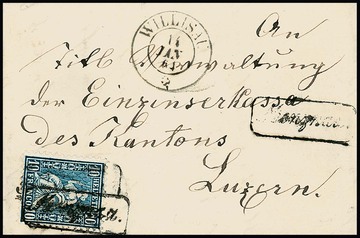 An
WILLISAU
11
JAN
Titl Verwaltung
der Einzinserkassa
des Kantons
Luzern.
10
10
10
10